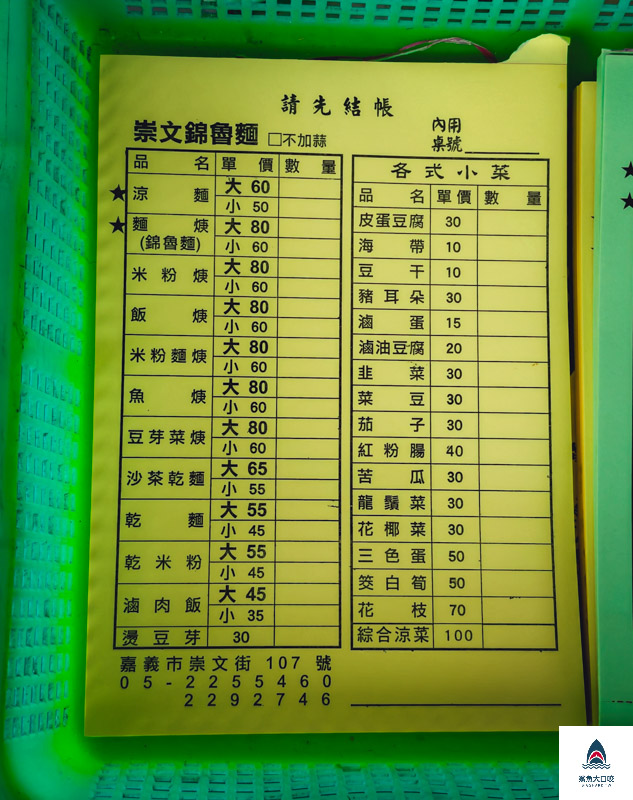 請先結帳
崇文錦魯麵 □不加蒜
內用
桌號
品名 單價 數量
★ 涼麵 大 60
小 50
★ 麵焿 大 80
(錦魯麵) 小 60
米粉焿 大 80
小 60
飯焿 大 80
小 60
米粉麵焿 大 80
小 60
魚焿 大 80
小 60
豆芽菜焿 大 80
小 60
沙茶乾麵 大 65
小 55
乾麵 大 55
小 45
乾米粉 大 55
小 45
滷肉飯 大 45
小 35
燙豆芽 30
各式小菜
品名 單價 數量
皮蛋豆腐 30
海帶 10
豆干 10
豬耳朵 30
滷蛋 15
滷油豆腐 20
韭菜 30
菜豆 30
茄子 30
紅粉腸 40
苦瓜 30
龍鬚菜 30
花椰菜 30
三色蛋 50
筊白筍 50
花枝 70
綜合涼菜 100
嘉義市崇文街 107 號
05-2255460
2292746
★
★
鯊魚大口咬